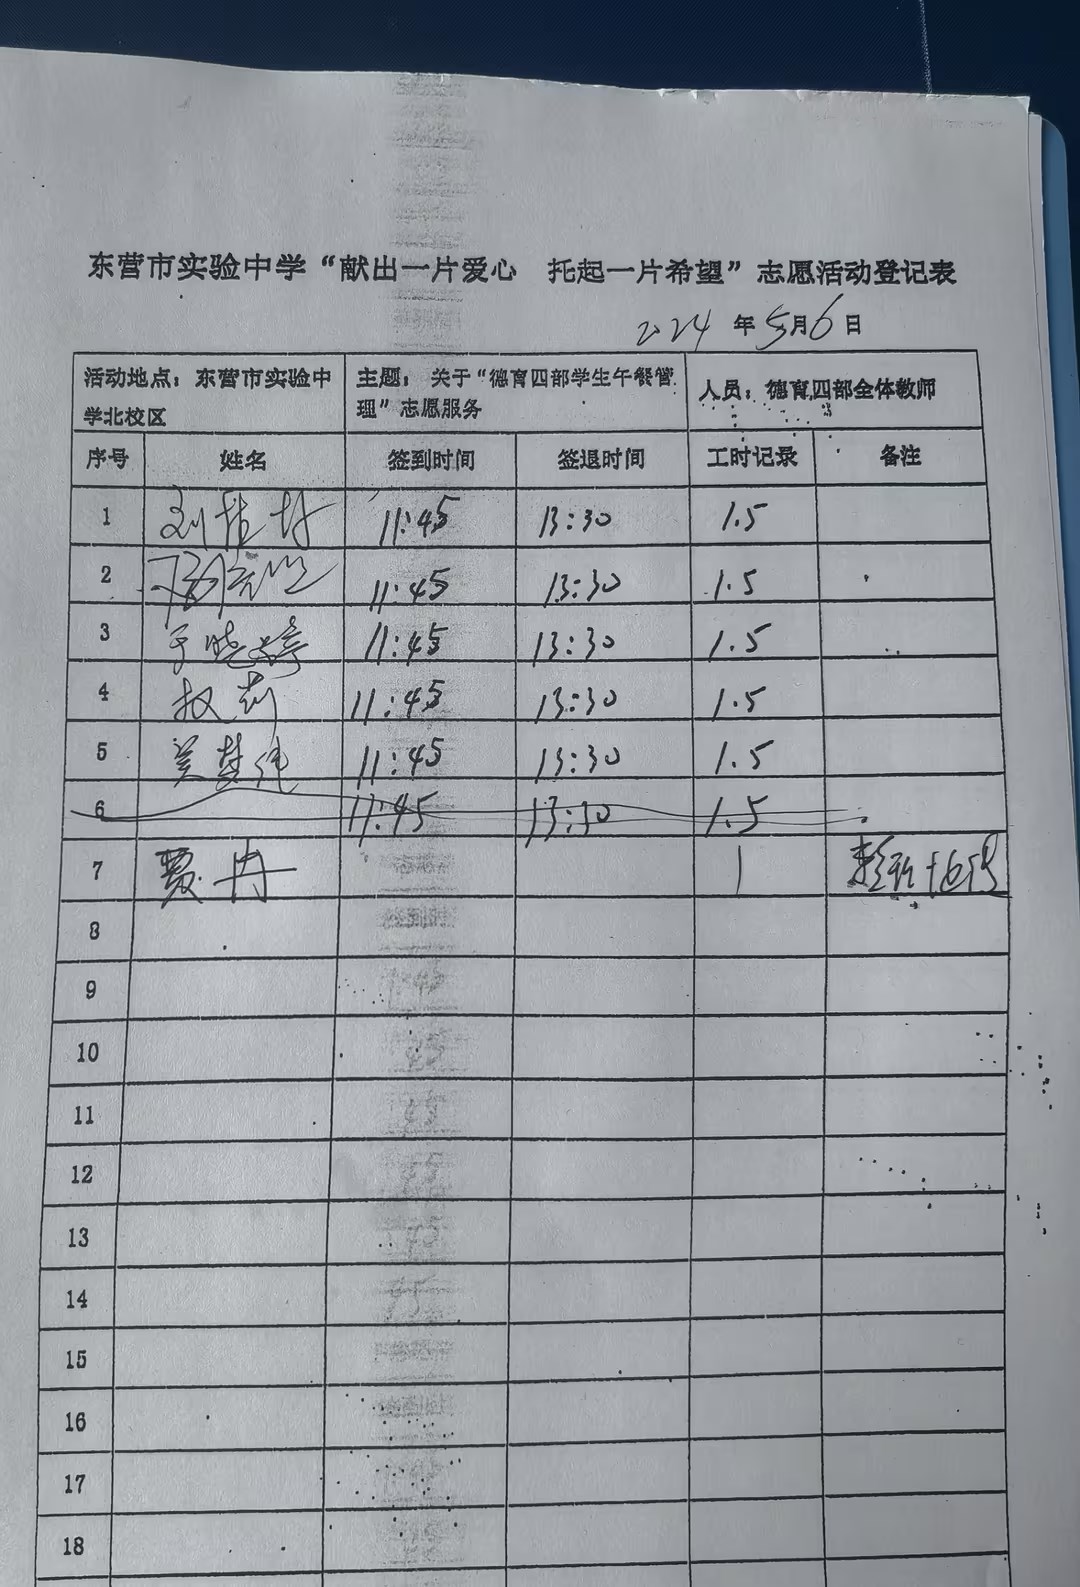 东营市实验中学“献出一片爱心 托起一片希望”志愿活动登记表
2024 年 5月 6 日
活动地点：东营市实验中学北校区 主题：关于“德育四部学生午餐管理”志愿服务 人员：德育四部全体教师
序号 姓名 签到时间 签退时间 工时记录 备注
1 刘 11:45 13:30 1.5
2 11:45 13:30 1.5
3 于晓婷 11:45 13:30 1.5
4 权莉 11:45 13:30 1.5
5 吴梦 11:45 13:30 1.5
6 11:45 13:30 1.5
7 贾冉 1
8
9
10
11
12
13
14
15
16
17
18